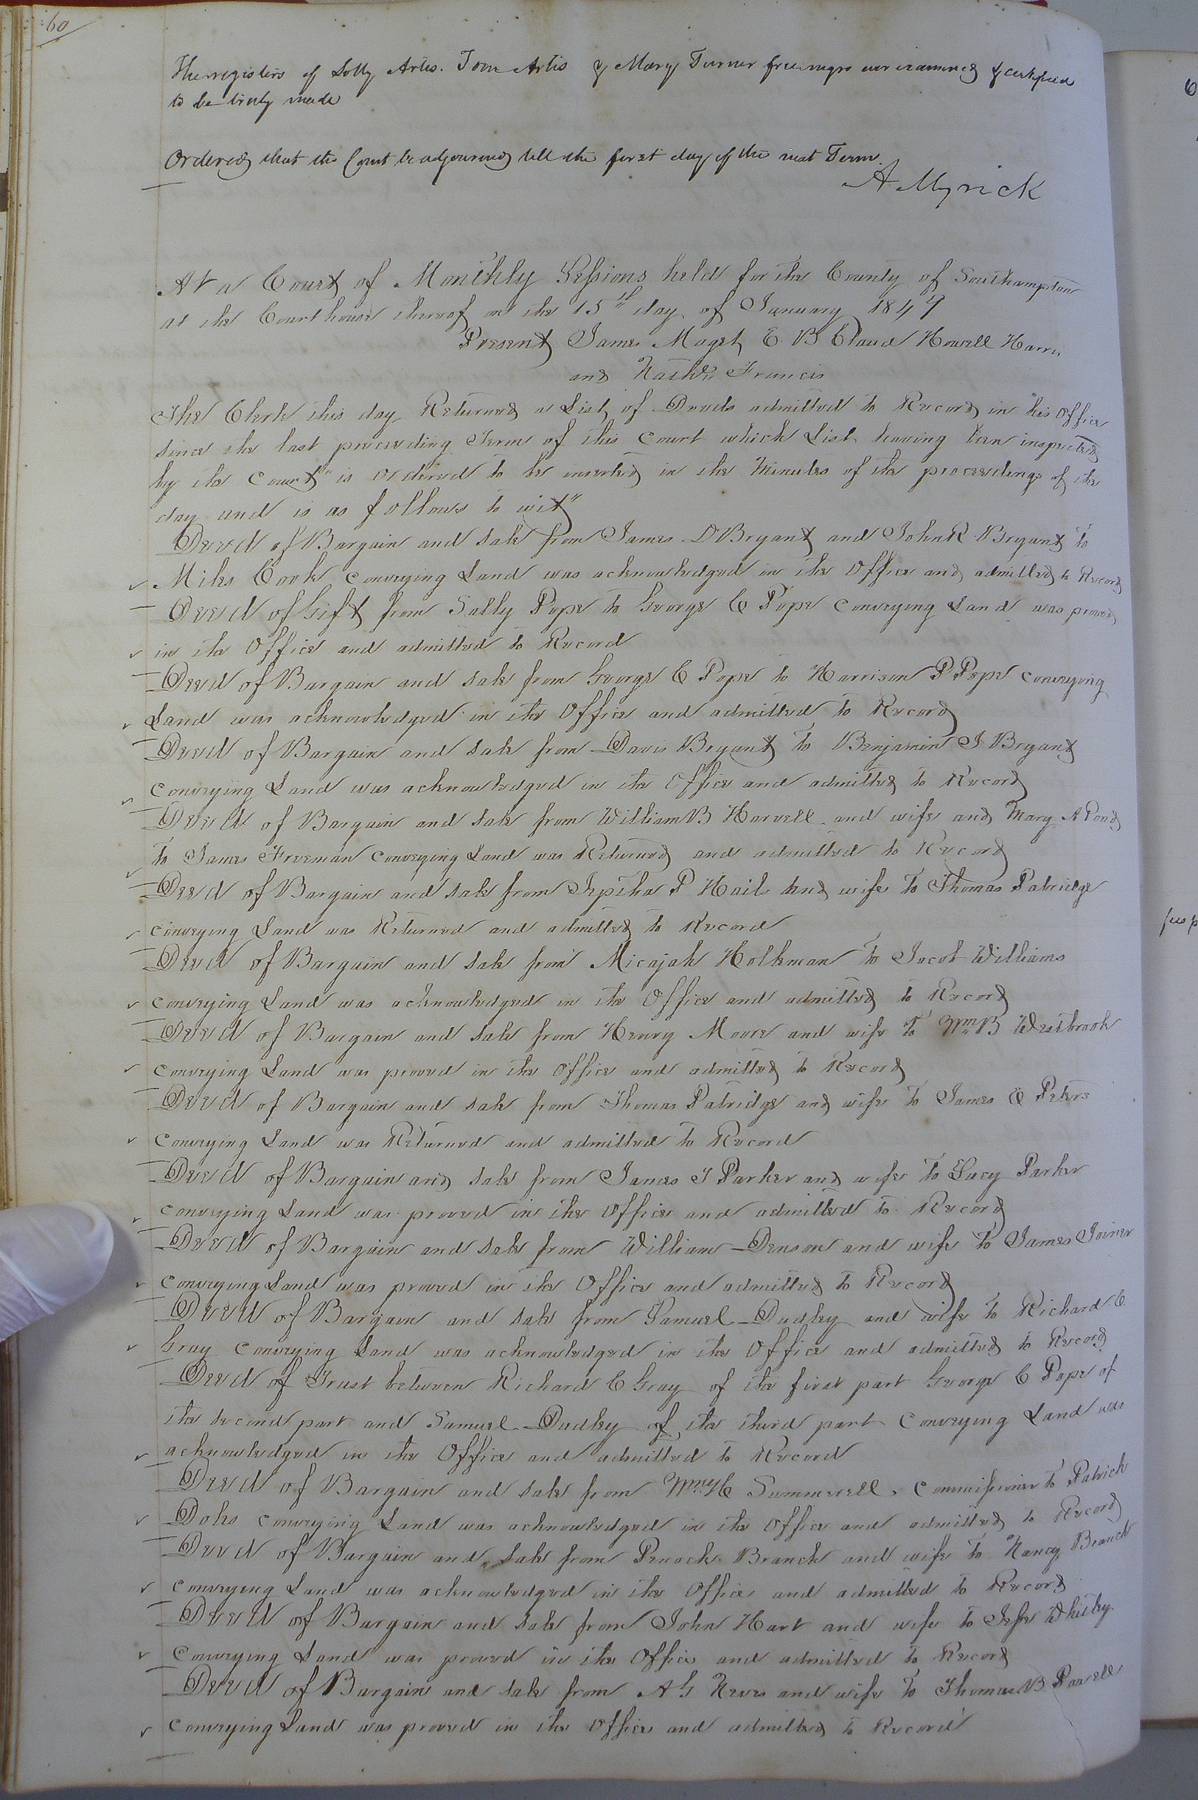 60
The registers of Dolly Artis. Tom Artis & Mary Turner free negro were examined & certified
to be truly made
Ordered that the Court be adjourned till the first day of the next Term.
A Myrick
At a Court of Monthly Sessions held for the County of Southampton
at the Courthouse thereof on the 15th day of January 1847
Present James Maget E B Claud Howell Harris
and Nathl Francis
The Clerk this day Returned a List of Deeds admitted to Record in his Office
since the last preceeding Term of this Court which List having been inspected
by the Court is ordered to be inserted in the Minutes of the proceedings of the
day and is as follows to wit"
Deed of Bargain and Sale from James D Bryant and John R Bryant to
Miles Cook conveying Land was acknowledged in the Office and admitted to Record
Deed of Gift from Sally Pope to George C Pope conveying Land was proved
in the Office and admitted to Record
Deed of Bargain and Sale from George C Pope to Harrison P Pope conveying
Land was acknowledged in the Office and admitted to Record
Deed of Bargain and Sale from Davis Bryant to Benjamin J Bryant
conveying Land was acknowledged in the Office and admitted to Record
Deed of Bargain and Sale from William B Harvell and wife and Mary A Pond
to James Freeman conveying Land was Returned and admitted to Record
Deed of Bargain and Sale from Jeptha P Haile and wife to Thomas Patridge
conveying Land was Returned and admitted to Record
Deed of Bargain and Sale from Micajah Holleman to Jacob Williams
conveying Land was acknowledged in the Office and admitted to Record
Deed of Bargain and Sale from Henry Moore and wife to Wm B Westbrook
conveying Land was proved in the Office and admitted to Record
Deed of Bargain and Sale from Thomas Patridge and wife to James Peters
conveying Land was Returned and admitted to Record
Deed of Bargain and Sale from James J Parker and wife to Lucy Parker
conveying Land was proved in the Office and admitted to Record
Deed of Bargain and Sale from William Denson and wife to James Joiner
conveying Land was proved in the Office and admitted to Record
Deed of Bargain and Sale from Samuel Dudley and wife to Richard C
Gray conveying Land was acknowledged in the Office and admitted to Record
Deed of Trust between Richard C Gray of the first part George C Pope of
the second part and Samuel Dudley of the third part conveying Land was
acknowledged in the Office and admitted to Record
Deed of Bargain and Sale from Summerell Commissioner to Patrick
Doles conveying Land was acknowledged in the Office and admitted to Record
Deed of Bargain and Sale from Branch and wife to Nancy Branch
conveying Land was acknowledged in the Office and admitted to Record
Deed of Bargain and Sale from John Hart and wife to Jesse Whitby
conveying Land was proved in the Office and admitted to Record
Deed of Bargain and Sale from A G and wife to Thomas B Powell
conveying Land was proved in the Office and admitted to Record